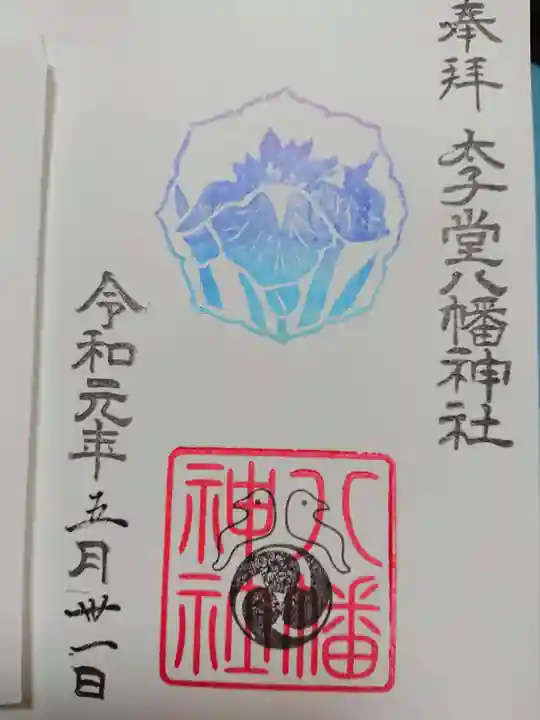 奉拝 太子堂八幡神社
八幡
神社
令和元年五月卅一日